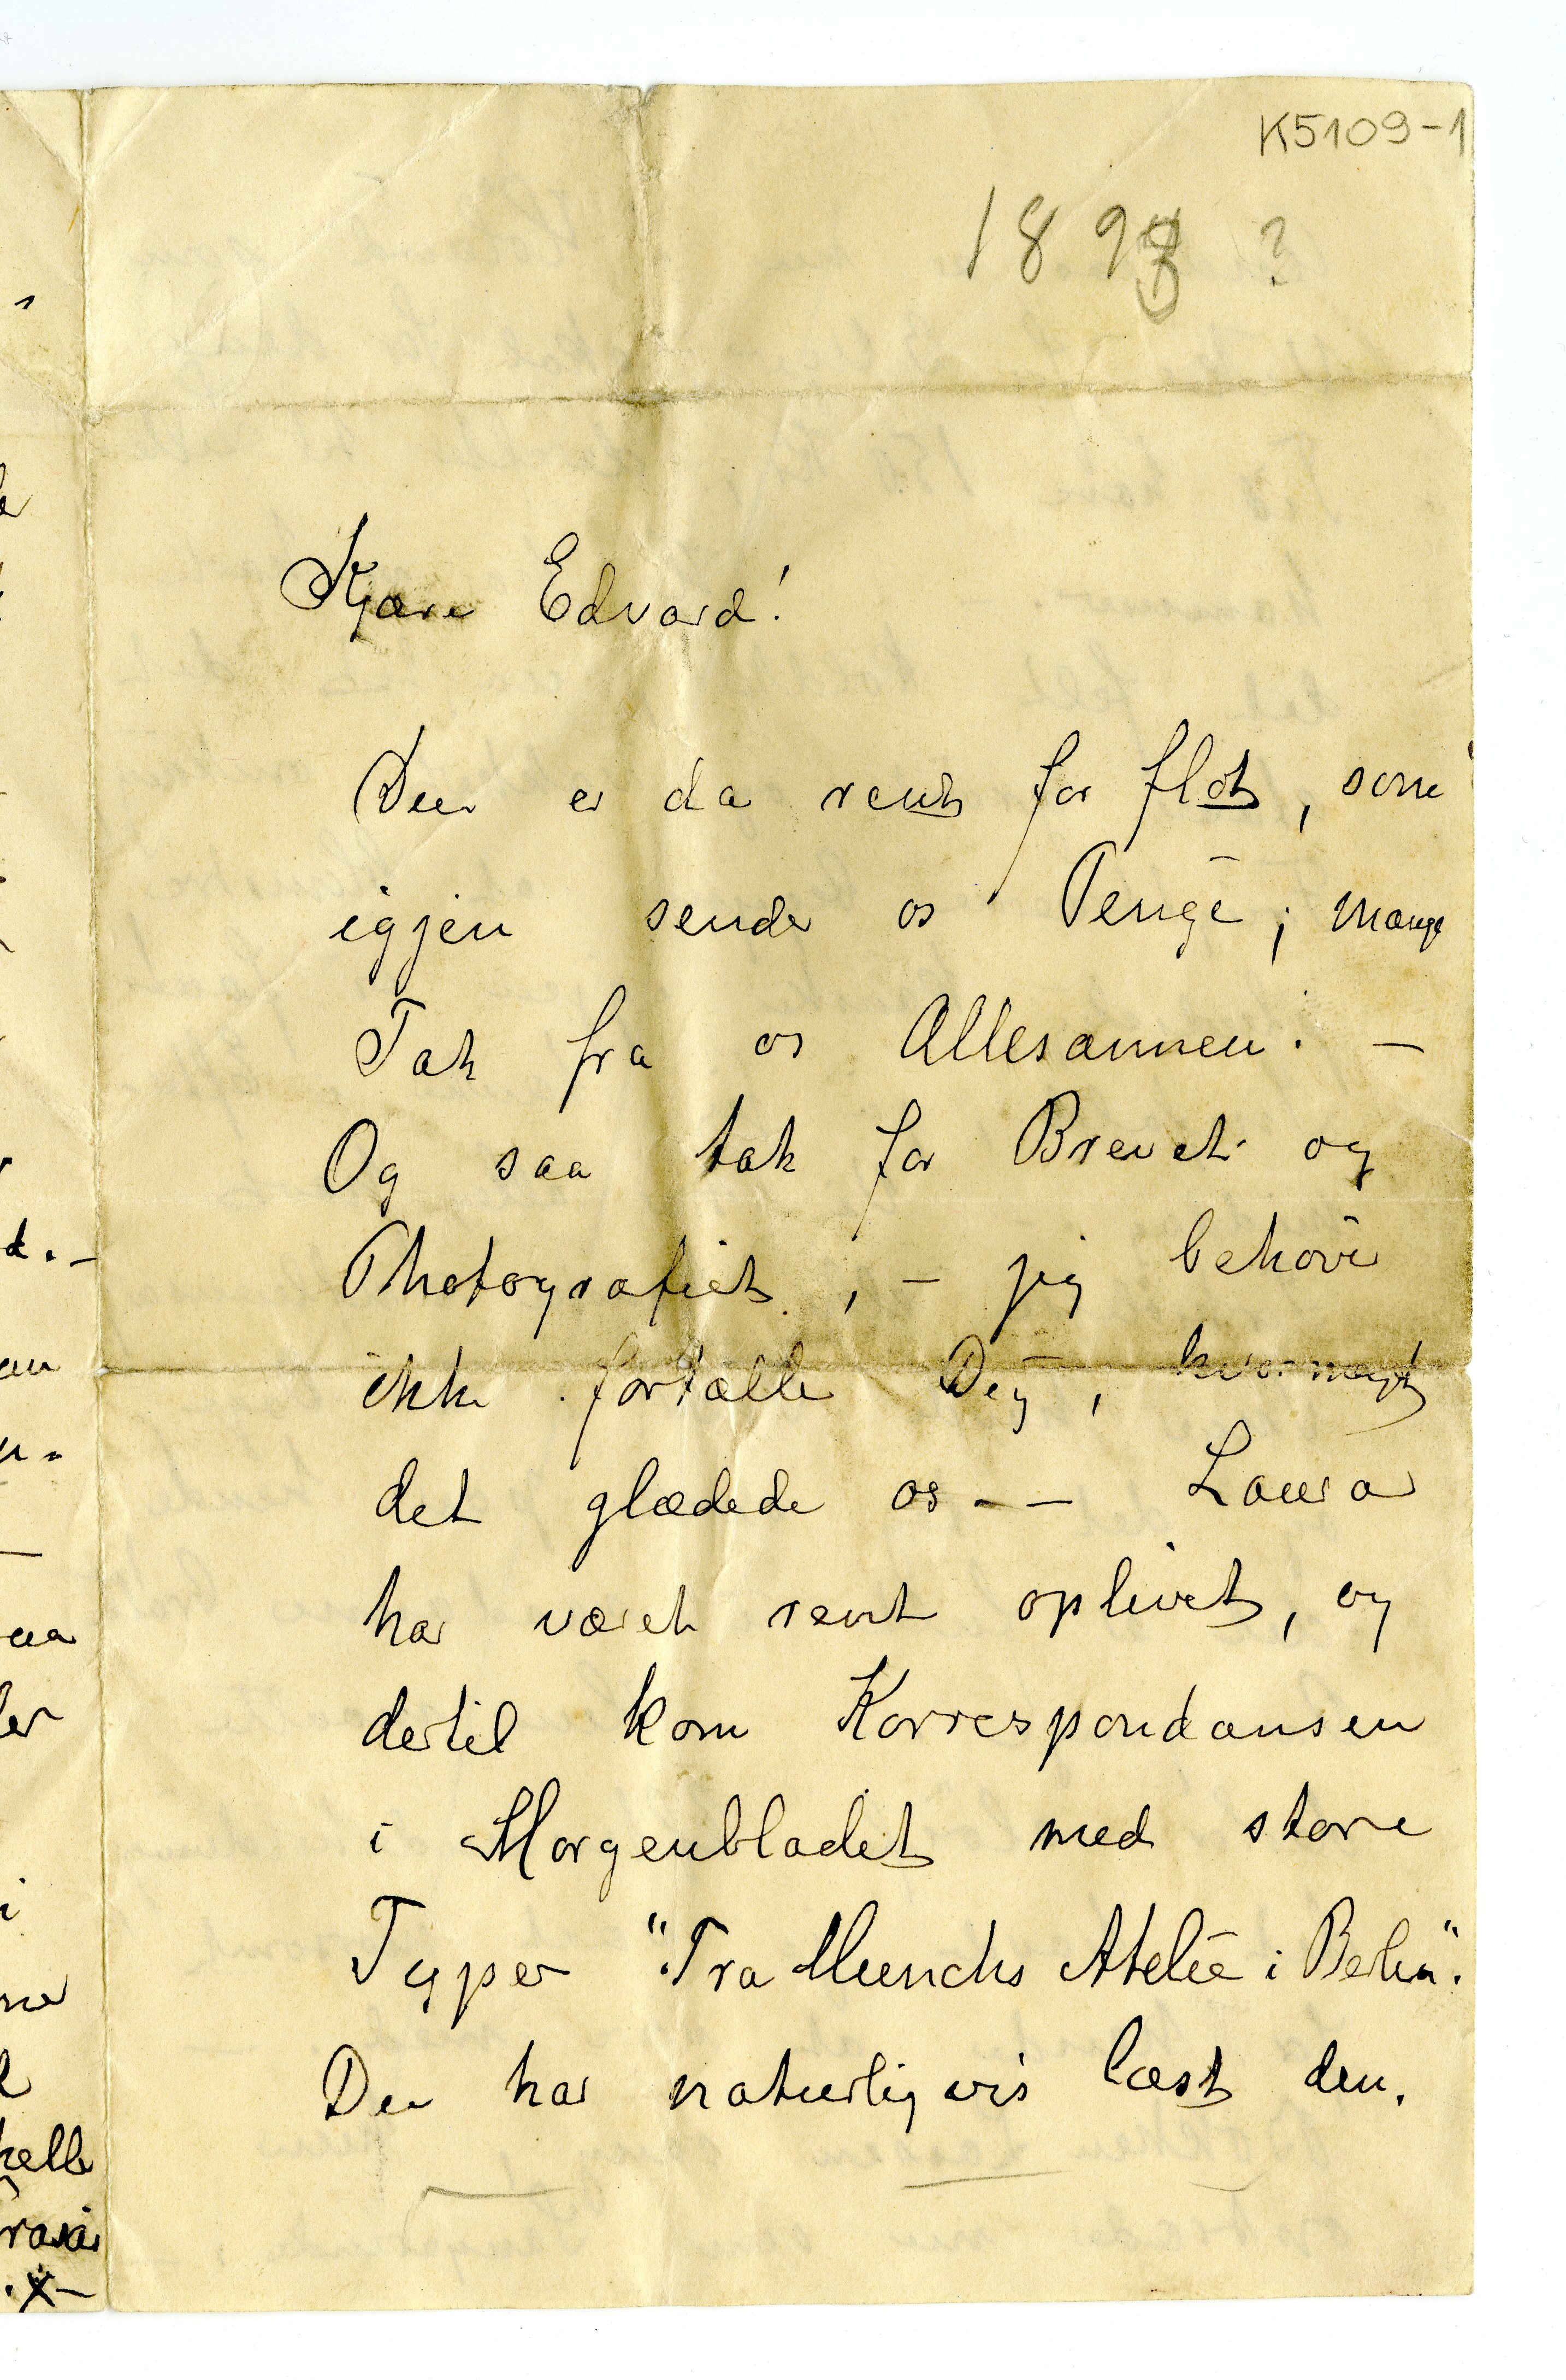 K5109-1
1893 ?
Kjære Edvard!
Du er da rent for flot, som
igjen sender os Penge; mange
Tak fra os Allesammen. –
Og saa tak for Brevet og
Photografiet, – jeg behøver
ikke fortælle Dig, hvor meget
det glædede os – – Laura
har været rent oplivet, og
dertil kom Korrespondansen
i Morgenbladet med store
Typer "Fra Munchs Atelie i Berlin".
Du har naturligvis læst den.